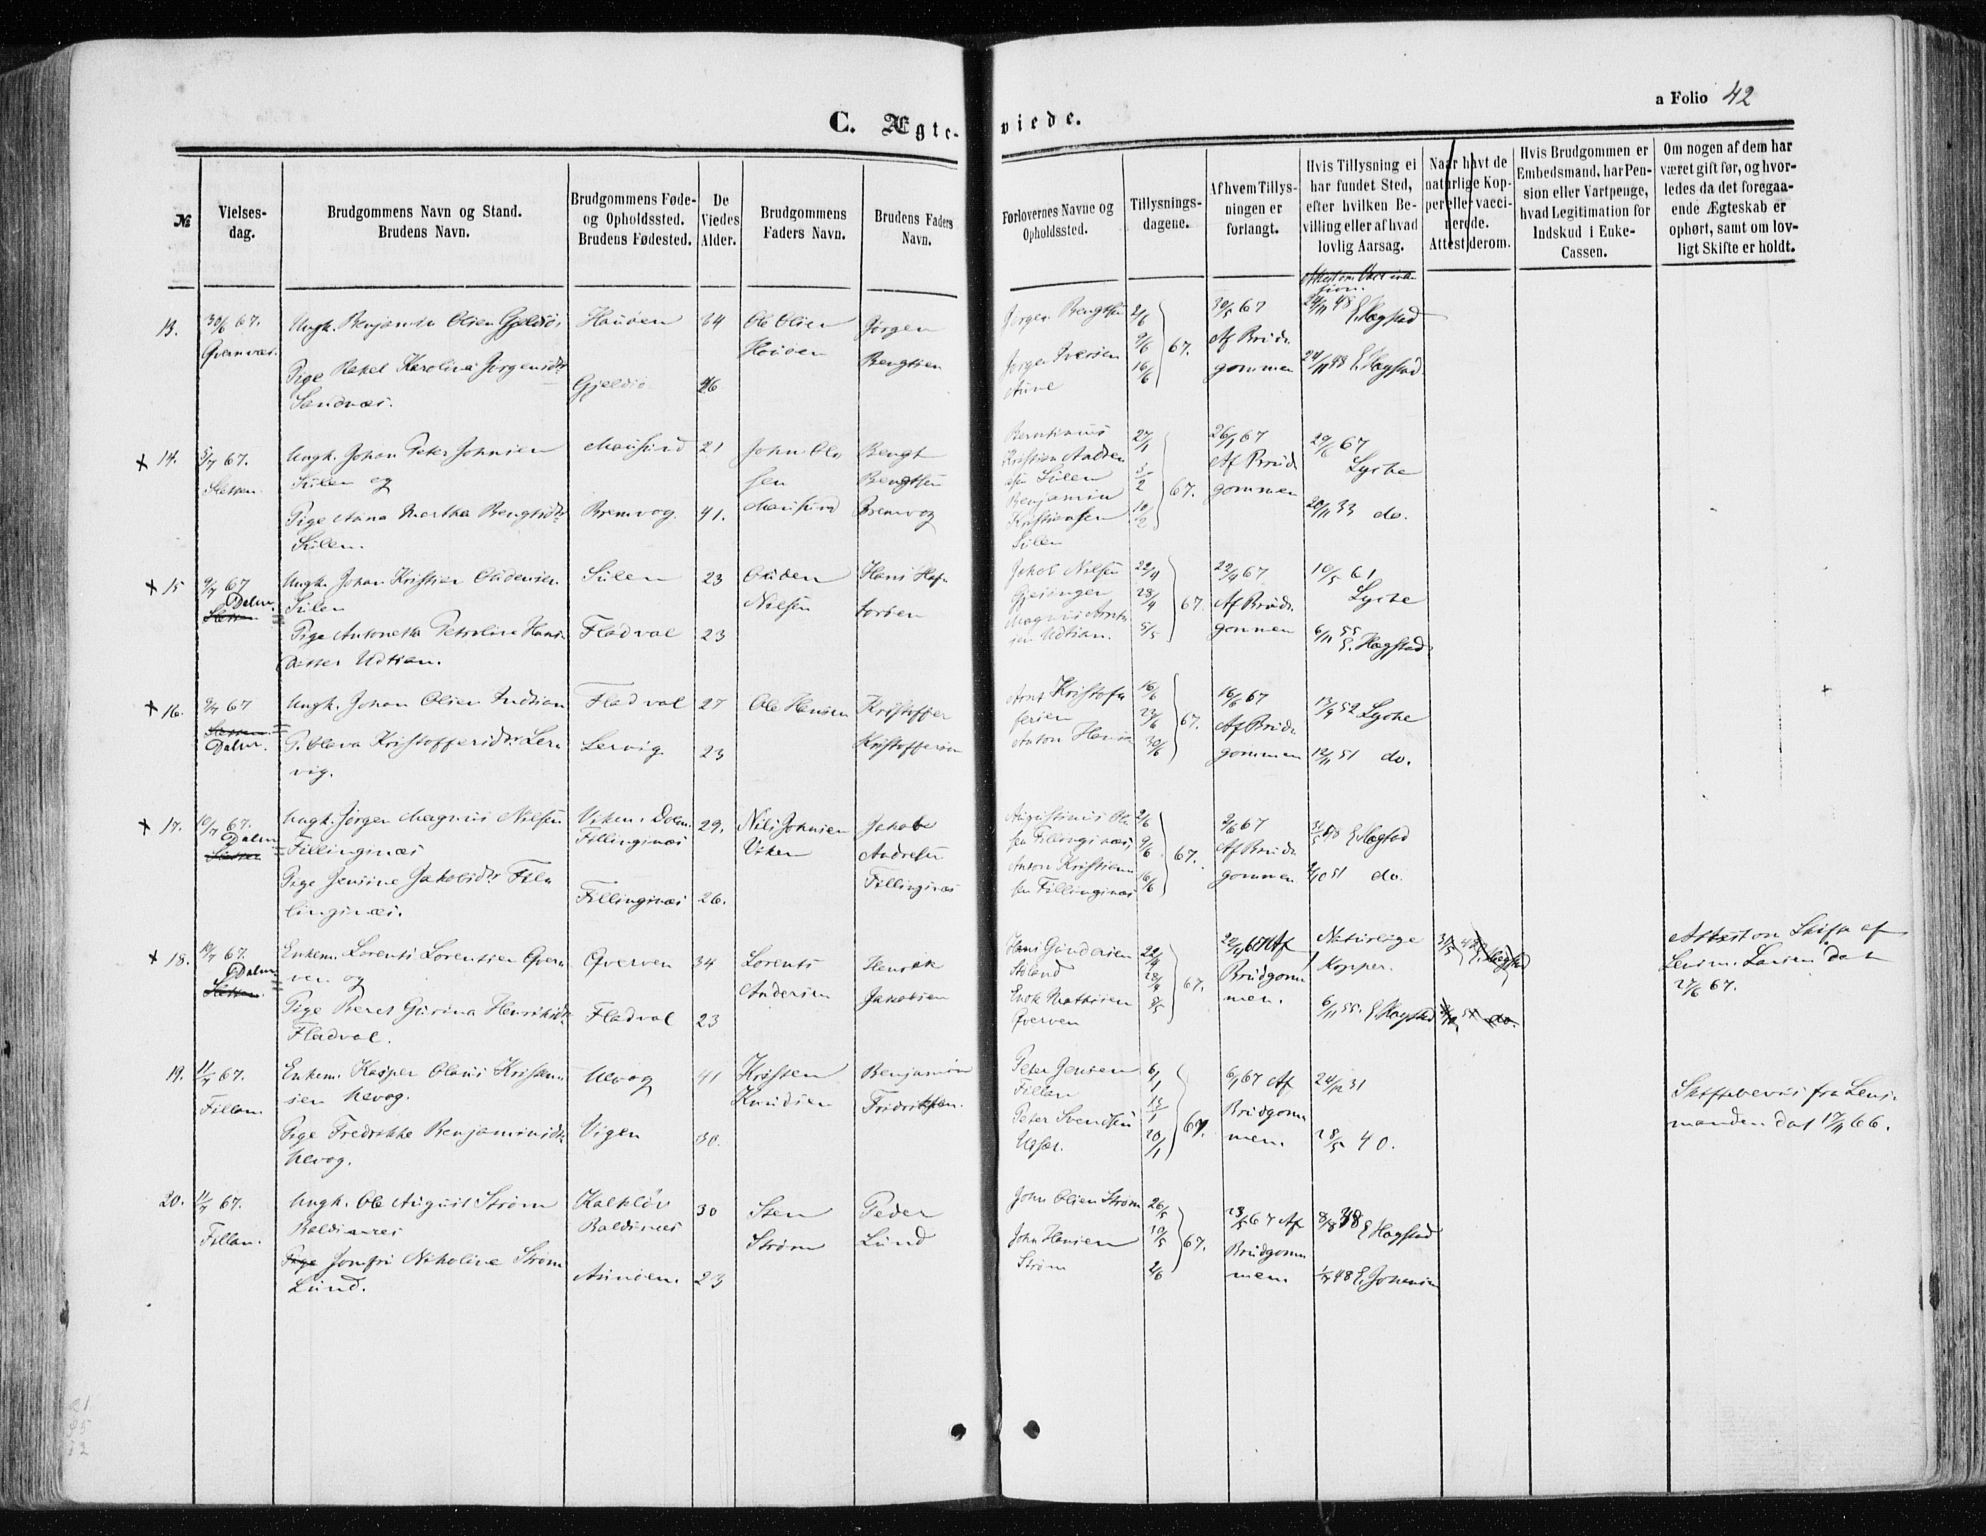 a Folio 42
C. Ægteviede.
№
Vielses-
dag.
Brudgommens Navn og Stand.
Brudens Navn.
Brudgommens Føde-
og Opholdssted.
Brudens Fødested.
De
Viedes
Alder.
Brudgommens
Faders Navn.
Brudens Faders
Navn.
Forlovernes Navne og
Opholdssted.
Tillysnings-
dagene.
Af hvem Tillys-
ningen er
forlangt.
Hvis Tillysning ei
har fundet Sted,
efter hvilken Be-
villing eller af hvad
lovlig Aarsag.
Naar havt de
naturlige Kop-
per eller vacci-
nerede.
Attest derom.
Hvis Brudgommen er
Embedsmand, har Pen-
sion eller Vartpenge,
hvad Legitimation for
Indskud i Enke-
Cassen.
Om nogen af dem har
været gift før, og hvor-
ledes da det foregaa-
ende Ægteskab er
ophørt, samt om lov-
ligt Skifte er holdt.
13.
30/6 67.
Ungk. Benjamin Olsen
Pige Rakel Karolina Jørgensdr
Sandnæs.
Gjeldsø
34
26
Ole Olsen
Jørgen
Bengtsen
Jørgen Bengtsen
Jørgen Iversen
Aune
2/6
9/6
16/6
67.
30/5 67
Af Brud-
gommen
24/11 48 E. Hagstad
24/11 48 E. Hagstad
x 14.
5/7 67.
Sletten
Ungk. Johan Peter Johnsen
Sulen og
Pige Anna Martha Bengtsdr
Sulen.
Mausund
Bremvog
21
41.
John Ol-
sen
Mausund
Bengt
Bengtsen
Bremvog
Kristian
Sulen
Benjamin
Kristiansen
Sulen
27/1
3/2
10/2
67.
26/1 67
Af Brud-
gommen
29/6 67
Lyche
20/11 33 do.
x 15
9/7 67
Dolm.
Sletten.
Ungk. Johan Kristian Oudensen
Sulen
Pige Antonetta Petroline Hans-
datter Udtian.
Sulen
Fladval
23
23
Ouden
Nilsen
Hans Haf-
torsen
Jakob Nilsen
Gjesingen
Magnus Arnt-
sen Udtian.
22/4
28/4
5/5
67.
22/4 67
Af Brud-
gommen
10/5 61
Lyche
6/11 55
E. Hagstad
x 16.
9/7 67
Sletten
Dolm.
Ungk. Johan Olsen
P. Oleva Kristoffersdr Ler-
vig.
Fladval
Lervig
27
23
Ole Hansen
Kristoffer
Kristoffersen
Arnt Kristof-
fersen
Anton Hansen
16/6
23/6
30/6
67.
16/6 67
Af Brud-
gommen
17/9 52 Lyche
12/11 51 do.
x 17.
10/7 67.
Dolm
Sletten
Ungk. Jørgen Magnus Nilsen
Fillingsnæs
Pige Jensine Jakobsdr Fil-
lingsnæs.
Viken, Dolm.
Fillingsnæs
Fillingsnæs
29.
26.
Nils Johnsen
Viken
Jakob
Andresen
Fillingsnæs
Augustinus Ol-
sen Fillingsnæs,
Anton Kristian-
sen Fillingsnæs
2/6
9/6
16/6
67.
2/6 67
Af Brud-
gommen
E. Hagstad
do.
x 18.
10/7 67.
Dolm
Sletten
Enkem. Lorents Lorentsen Qver-
ven og
Pige Beret Gurina Henriksdr
Fladval.
Qverven
Fladval
34
23
Lorents
Andersen
Henrik
Jakobsen
Hans Gundersen
Enok Mathisen
Qverven
22/4
28/4
5/5
67.
22/4 67 Af
Brudgom-
men.
Naturlige
Kopper.
6/11 55. E. Hagstad
E. Hagstad
do.
Attest om Skifte af
Lensm. Larsen dat
27/6 67.
19.
11/7 67.
Fillan.
Enkem. Kasper Olaus Kristen-
sen Hevog.
Pige Fredrikke Benjaminsdr
Hevog.
Hevog
Vigen
41
30.
Kristen
Knudsen
Benjamin
Fridriksen.
Peter Jensen
Fillan
Peter Svendsen
Ulfsæt.
6/1
13/1
20/1
67.
6/1 67 Af
Brudgom-
men.
24/12 31
28/5 40.
Skiftebevis fra Lens-
manden dat 17/11 66.
20.
11/7 67.
Fillan.
Ungk. Ole August Strøm
Baldisnæs
Pige Jomfru Nikoline Strøm
Lund.
Kalkløv
Baldisnæs
30
23
Sten
Strøm
Peder
Lund
John Olsen Strøm
John Hansen
Strøm
26/5
30/5
2/6
67.
23/5 67 Af
Brudgom-
men.
8/8 38 E. Hagstad